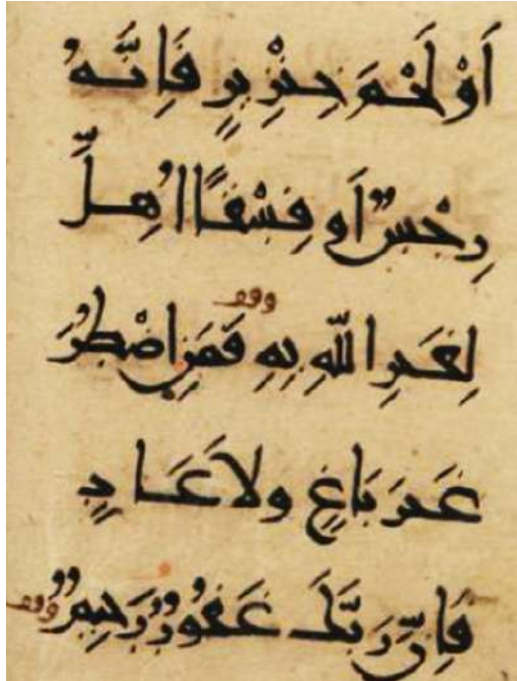 اَوْ لَحْمَ خِنْزِيرٍ فَاِنَّهُ
رِجْسٌ اَو فِسْقًا اُهِلَّ
لِغَيرِ اللّٰهِ بِهِ فَمَنِ اضْطُرَّ
غَيرَ بَاغٍ ولاَ عَادٍ
فَاِنَّ رَبَّكَ غَفُورٌ رَحِيمٌ